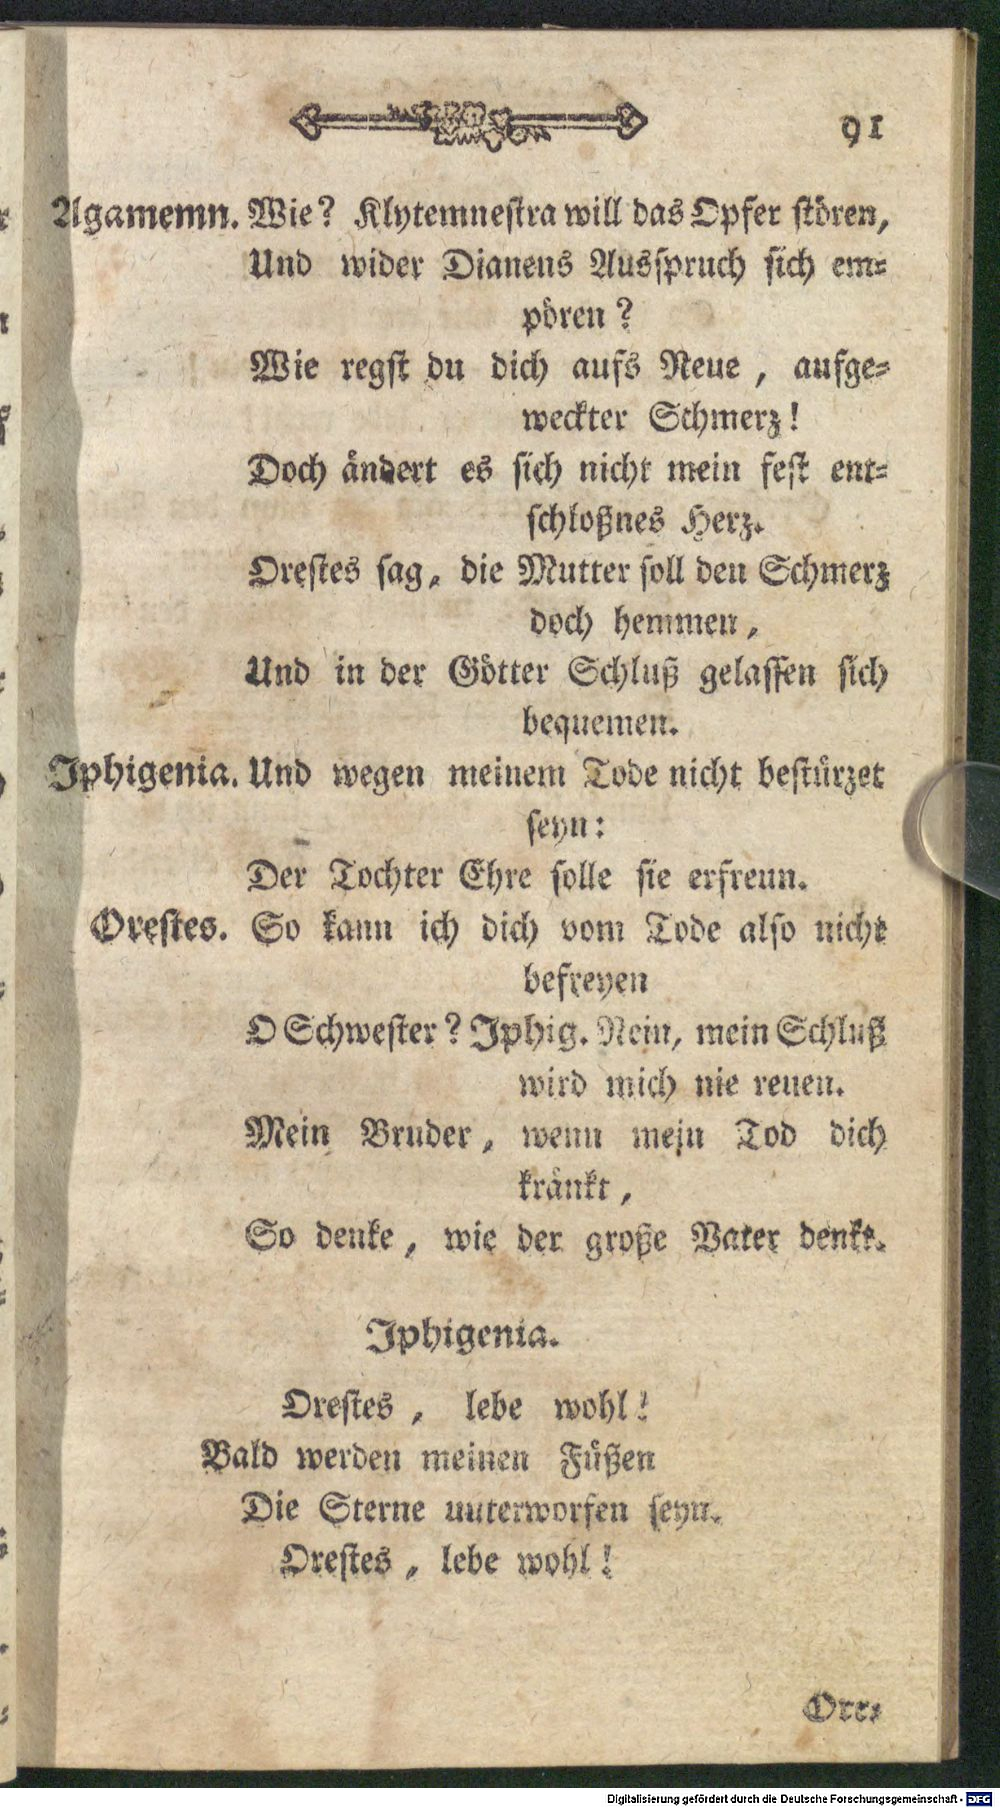 91
Agamemn. Wie? Klytemnestra will das Opfer stören,
Und wider Dianens Ausspruch sich em-
pören?
Wie regst du dich aufs Neue, aufge-
weckter Schmerz!
Doch ändert es sich nicht mein fest ent-
schloßnes Herz.
Orestes sag, die Mutter soll den Schmerz
doch hemmen,
Und in der Götter Schluß gelassen sich
bequemen.
Iphigenia. Und wegen meinem Tode nicht bestürzet
seyn:
Der Tochter Ehre solle sie erfreun.
Orestes. So kann ich dich vom Tode also nicht
befreyen
O Schwester? Iphig. Nein, mein Schluß
wird mich nie reuen.
Mein Bruder, wenn mein Tod dich
kränkt,
So denke, wie der große Vater denkt.
Iphigenia.
Orestes, lebe wohl!
Bald werden meinen Füßen
Die Sterne unterworfen seyn.
Orestes, lebe wohl!
Ore-
Digitalisierung gefördert durch die Deutsche Forschungsgemeinschaft - DFG